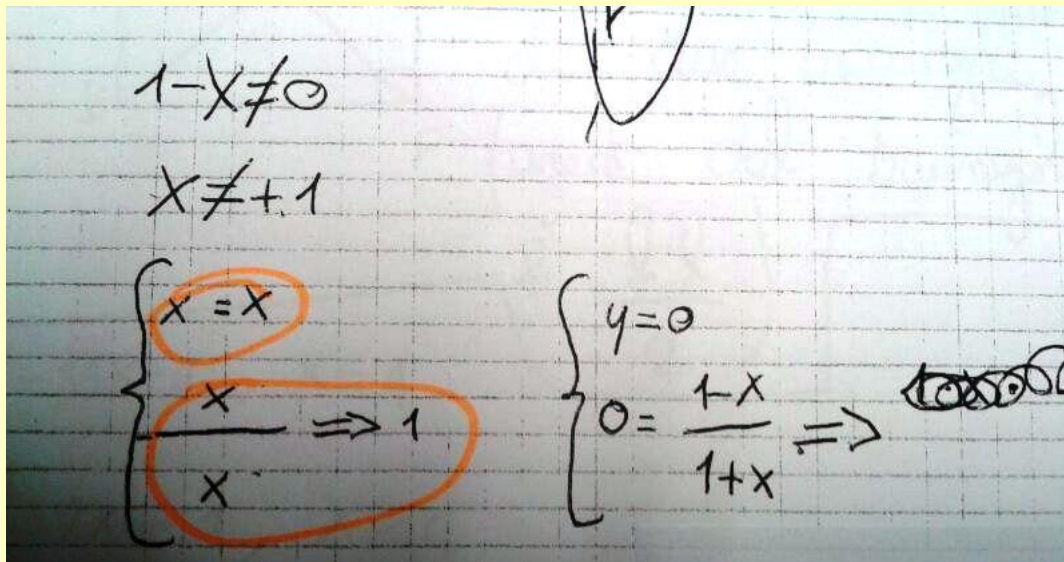 1-x≠0
x≠+1
x=x
x/x ⇒ 1
y=0
0= 1-x/1+x ⇒